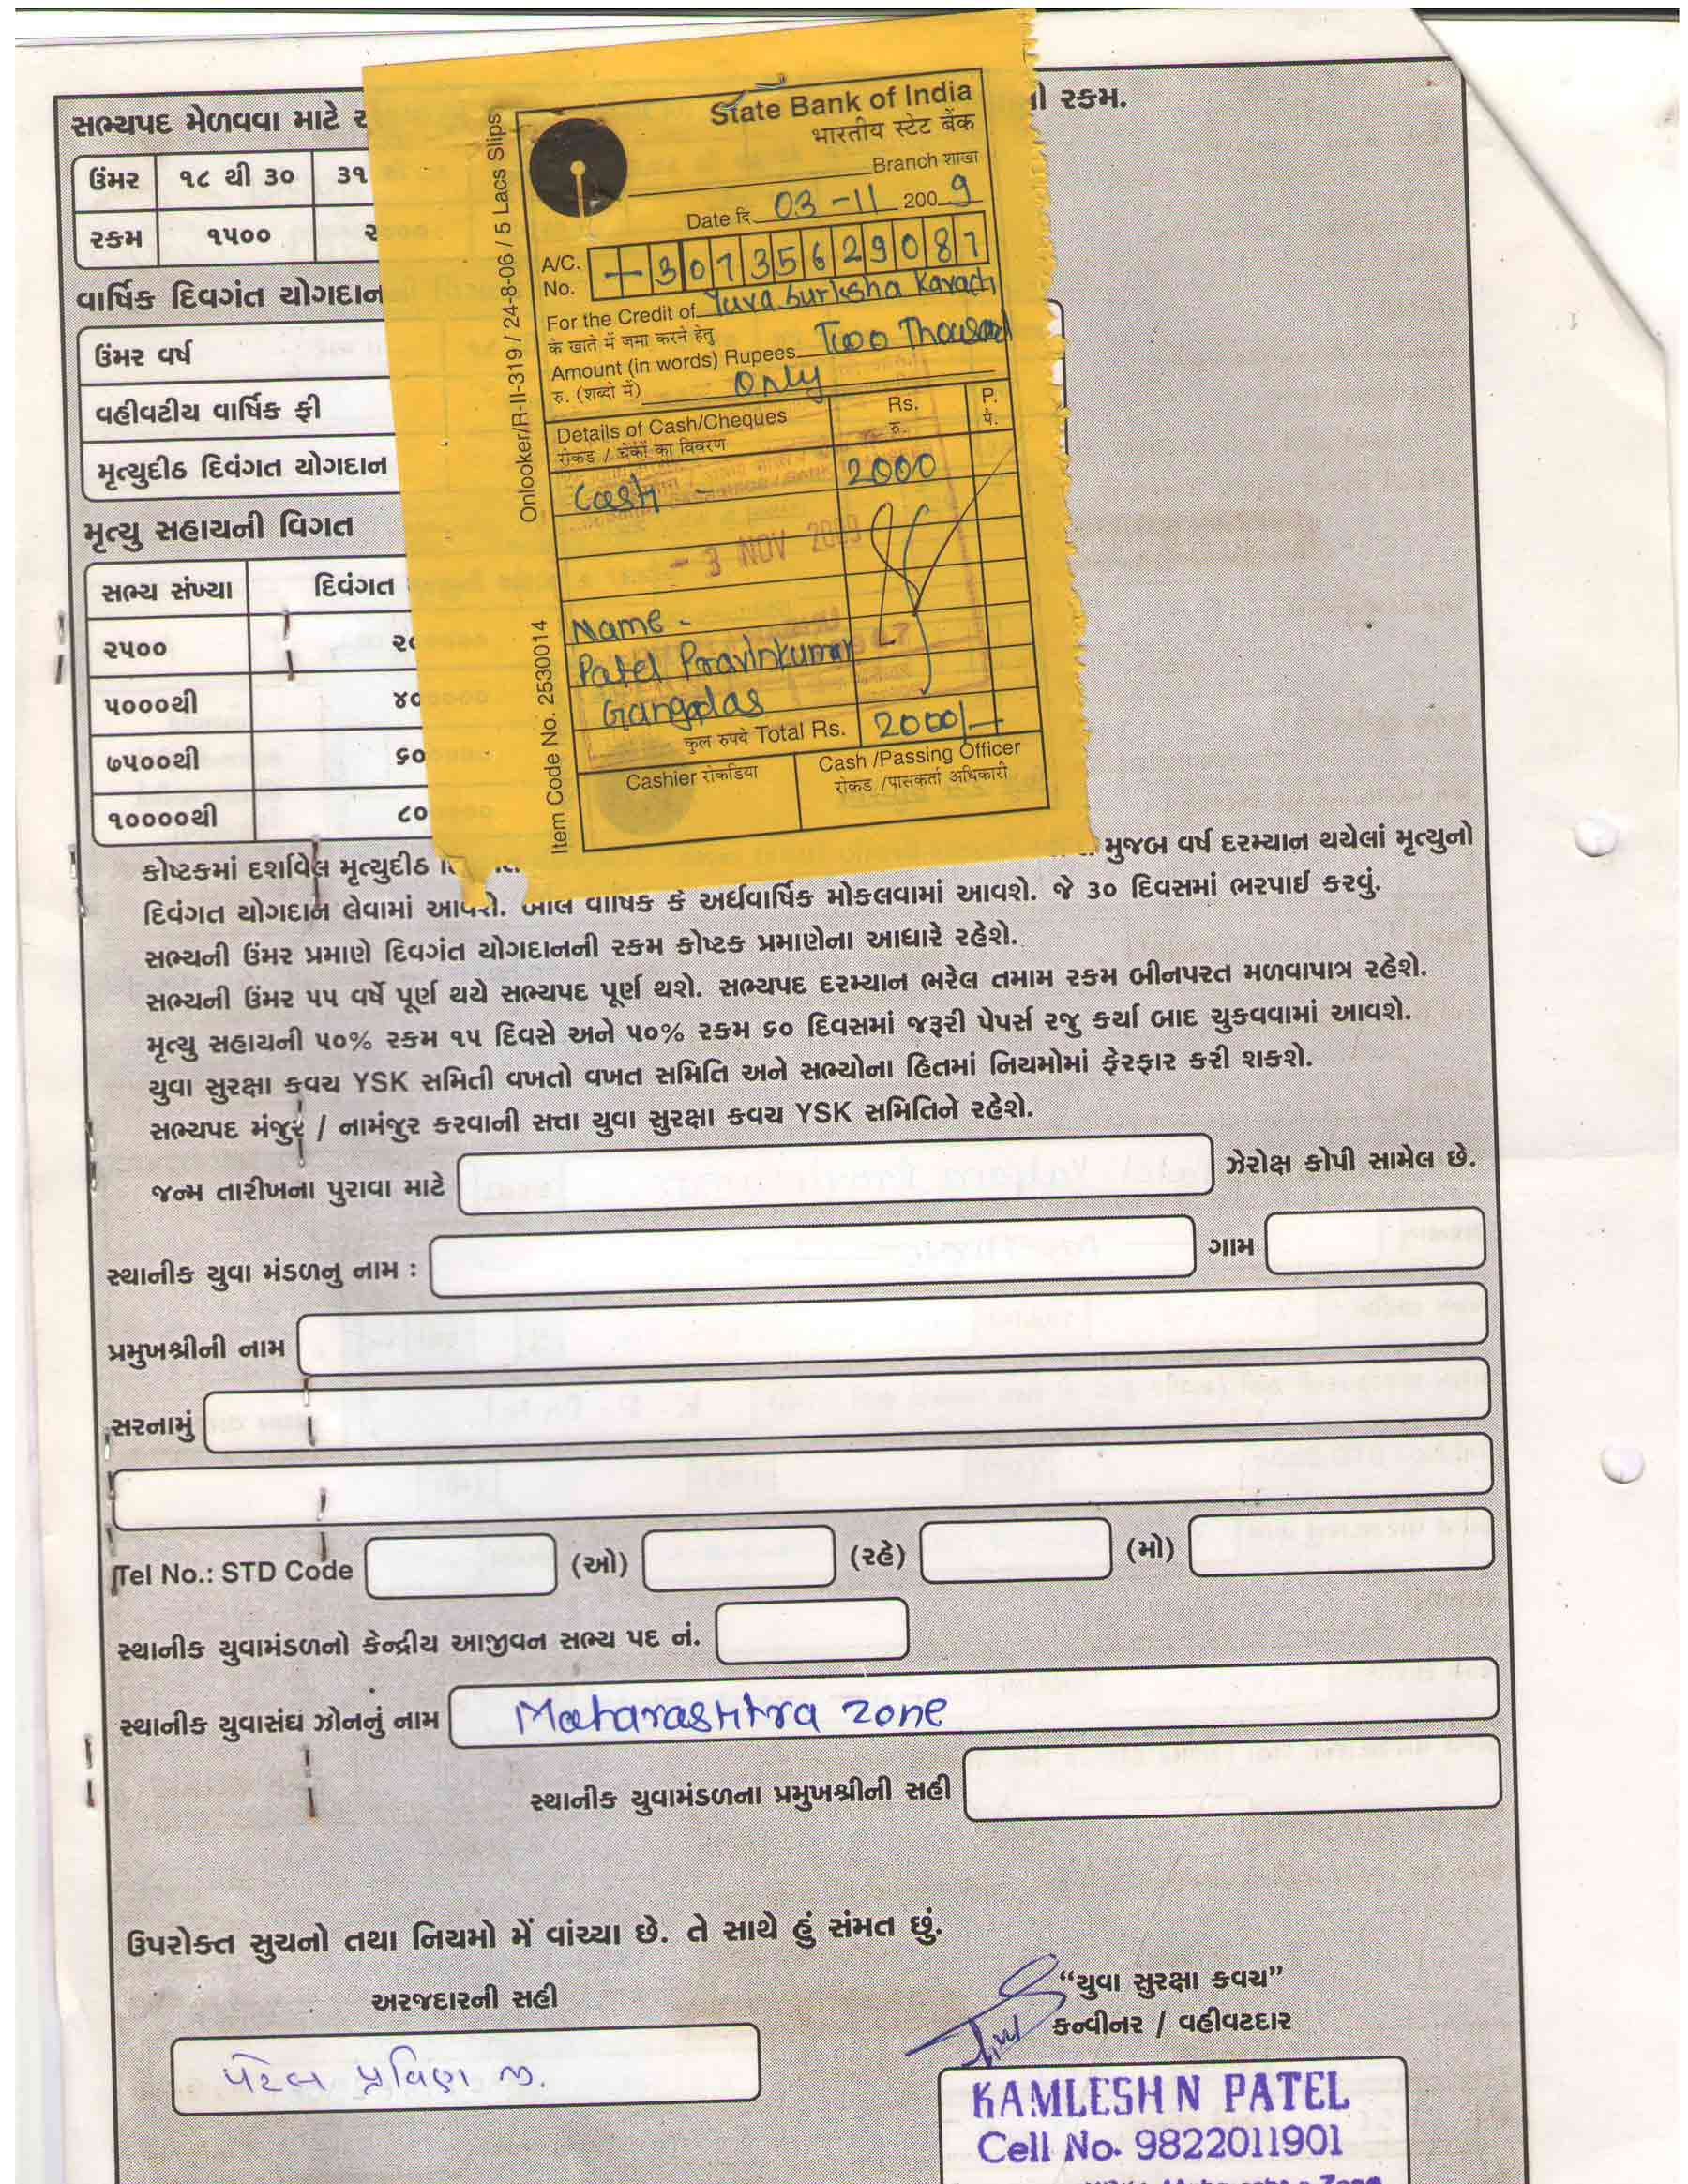 સભ્યપદ મેળવવા માટે ર
ની રકમ.
ઉંમર ૧૮ થી ૩૦ ૩૧
રકમ ૧૫૦૦ ૨
વાર્ષિક દિવગંત યોગદાન
ઉંમર વર્ષ
વહીવટીય વાર્ષિક ફી
મૃત્યુદીઠ દિવંગત યોગદાન
મૃત્યુ સહાયની વિગત
સભ્ય સંખ્યા દિવંગત
૨૫૦૦ ૨૦
૫૦૦૦થી ૪૦
૭૫૦૦થી ૬૦
૧૦૦૦૦થી ૮૦
Onlooker/R-II-319 / 24-8-06 / 5 Lacs Slips
Item Code No. 2530014
State Bank of India
भारतीय स्टेट बैंक
Branch शाखा
Date दि. 03-11 2009
A/C. No. 30735629087
For the Credit of Yuva Surksha Kavach
के खाते में जमा करने हेतु
Amount (in words) Rupees Two Thousand
रु. (शब्दो में) Only
Details of Cash/Cheques Rs. P.
रोकड / चेकों का विवरण रु. पै.
Cash - 2000
- 3 NOV 2009
Name -
Patel Pravinkumar
Gangdas
कुल रुपये Total Rs. 2000/-
Cashier रोकडिया Cash /Passing Officer
रोकड /पासकर्ता अधिकारी
કોષ્ટકમાં દર્શાવેલ મૃત્યુદીઠ મુજબ વર્ષ દરમ્યાન થયેલાં મૃત્યુનો
દિવંગત યોગદાન લેવામાં આવશે. બીલ વાર્ષિક કે અર્ધવાર્ષિક મોકલવામાં આવશે. જે ૩૦ દિવસમાં ભરપાઈ કરવું.
સભ્યની ઉંમર પ્રમાણે દિવગંત યોગદાનની રકમ કોષ્ટક પ્રમાણેના આધારે રહેશે.
સભ્યની ઉંમર ૫૫ વર્ષે પૂર્ણ થયે સભ્યપદ પૂર્ણ થશે. સભ્યપદ દરમ્યાન ભરેલ તમામ રકમ બીનપરત મળવાપાત્ર રહેશે.
મૃત્યુ સહાયની ૫૦% રકમ ૧૫ દિવસે અને ૫૦% રકમ ૬૦ દિવસમાં જરૂરી પેપર્સ રજુ કર્યા બાદ ચુકવવામાં આવશે.
યુવા સુરક્ષા કવચ YSK સમિતી વખતો વખત સમિતિ અને સભ્યોના હિતમાં નિયમોમાં ફેરફાર કરી શકશે.
સભ્યપદ મંજુર / નામંજુર કરવાની સત્તા યુવા સુરક્ષા કવચ YSK સમિતિને રહેશે.
જન્મ તારીખના પુરાવા માટે ઝેરોક્ષ કોપી સામેલ છે.
સ્થાનીક યુવા મંડળનુ નામ : ગામ
પ્રમુખશ્રીની નામ
સરનામું
Tel No.: STD Code (ઓ) (રહે) (મો)
સ્થાનીક યુવામંડળનો કેન્દ્રીય આજીવન સભ્ય પદ નં.
સ્થાનીક યુવાસંઘ ઝોનનું નામ Maharashtra zone
સ્થાનીક યુવામંડળના પ્રમુખશ્રીની સહી
ઉપરોક્ત સુચનો તથા નિયમો મેં વાંચ્યા છે. તે સાથે હું સંમત છું.
અરજદારની સહી
પટેલ પ્રવિણ જી.
“યુવા સુરક્ષા કવચ”
કન્વીનર / વહીવટદાર
KAMLESH N PATEL
Cell No. 9822011901